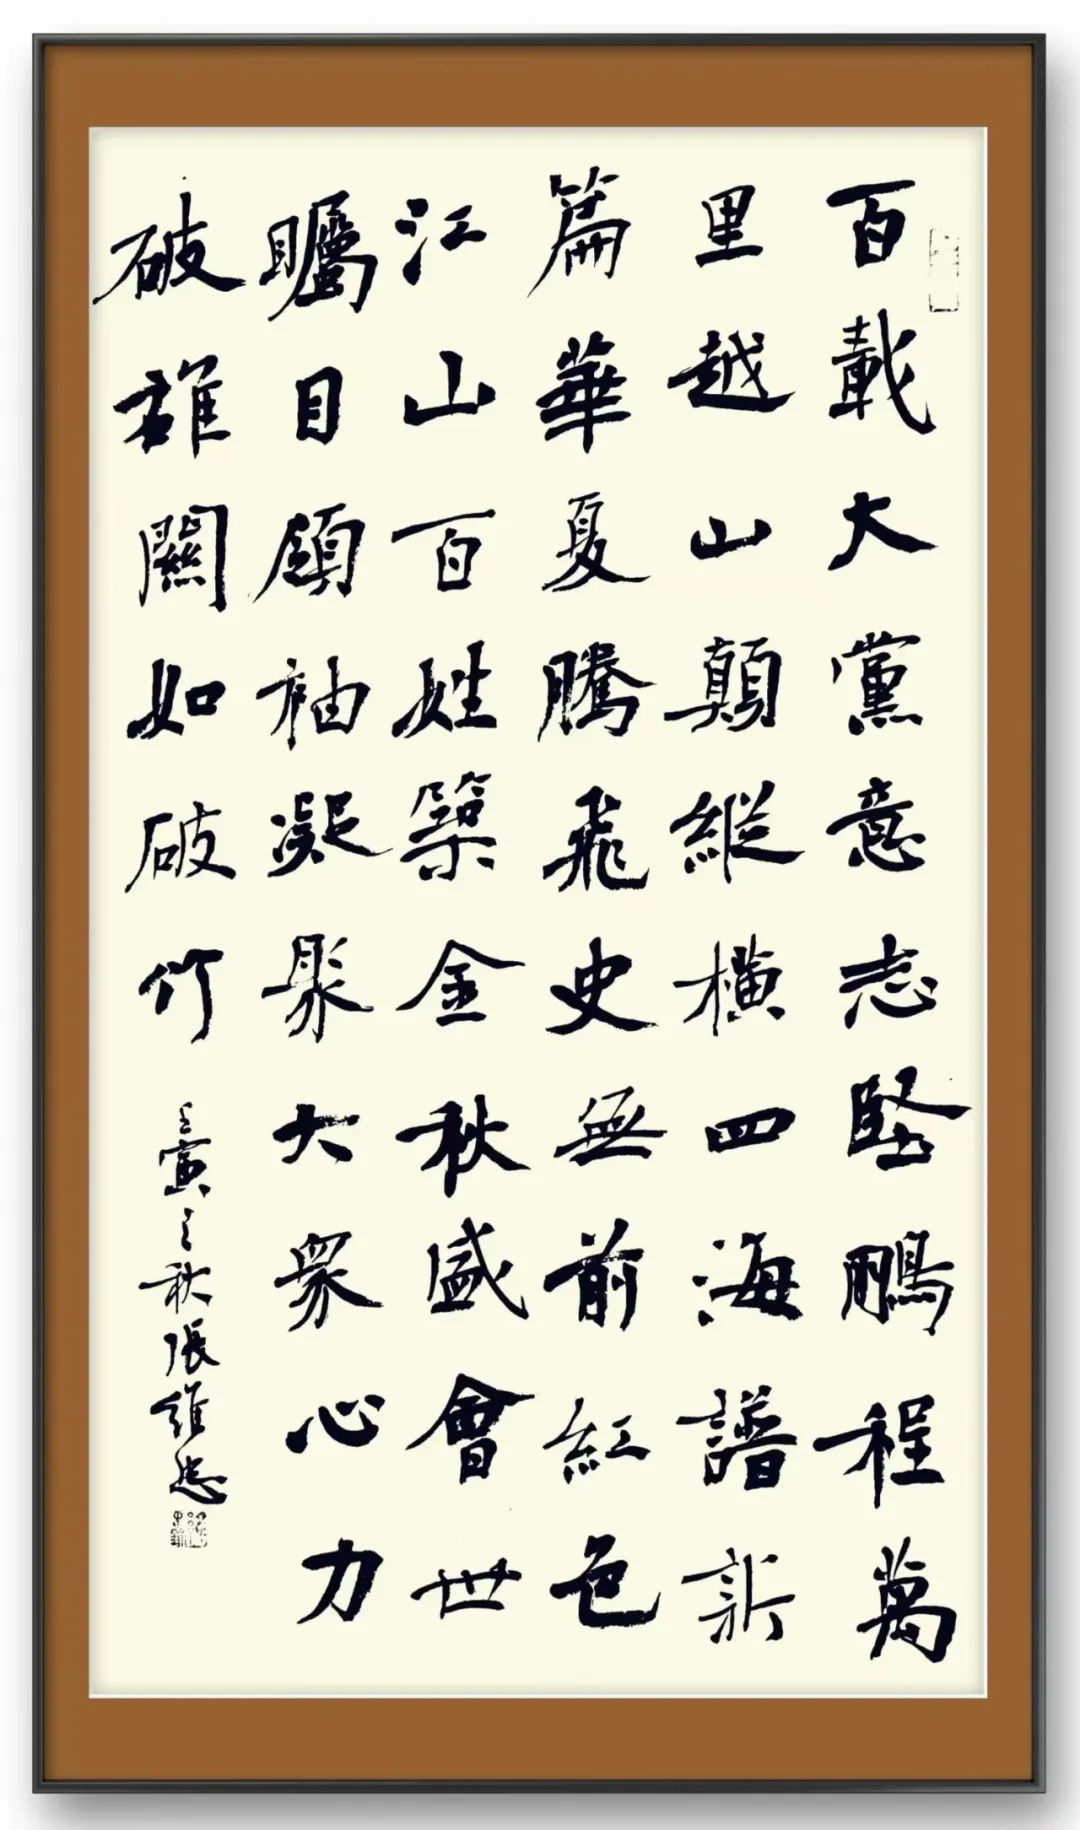 百載大黨意志堅鵬程萬
里越山顛縱橫四海譜新
篇華夏騰飛史無前紅色
江山百姓築金秋盛會世
矚目領袖凝聚大眾心力
破雄關如破竹
壬寅之秋張維忠